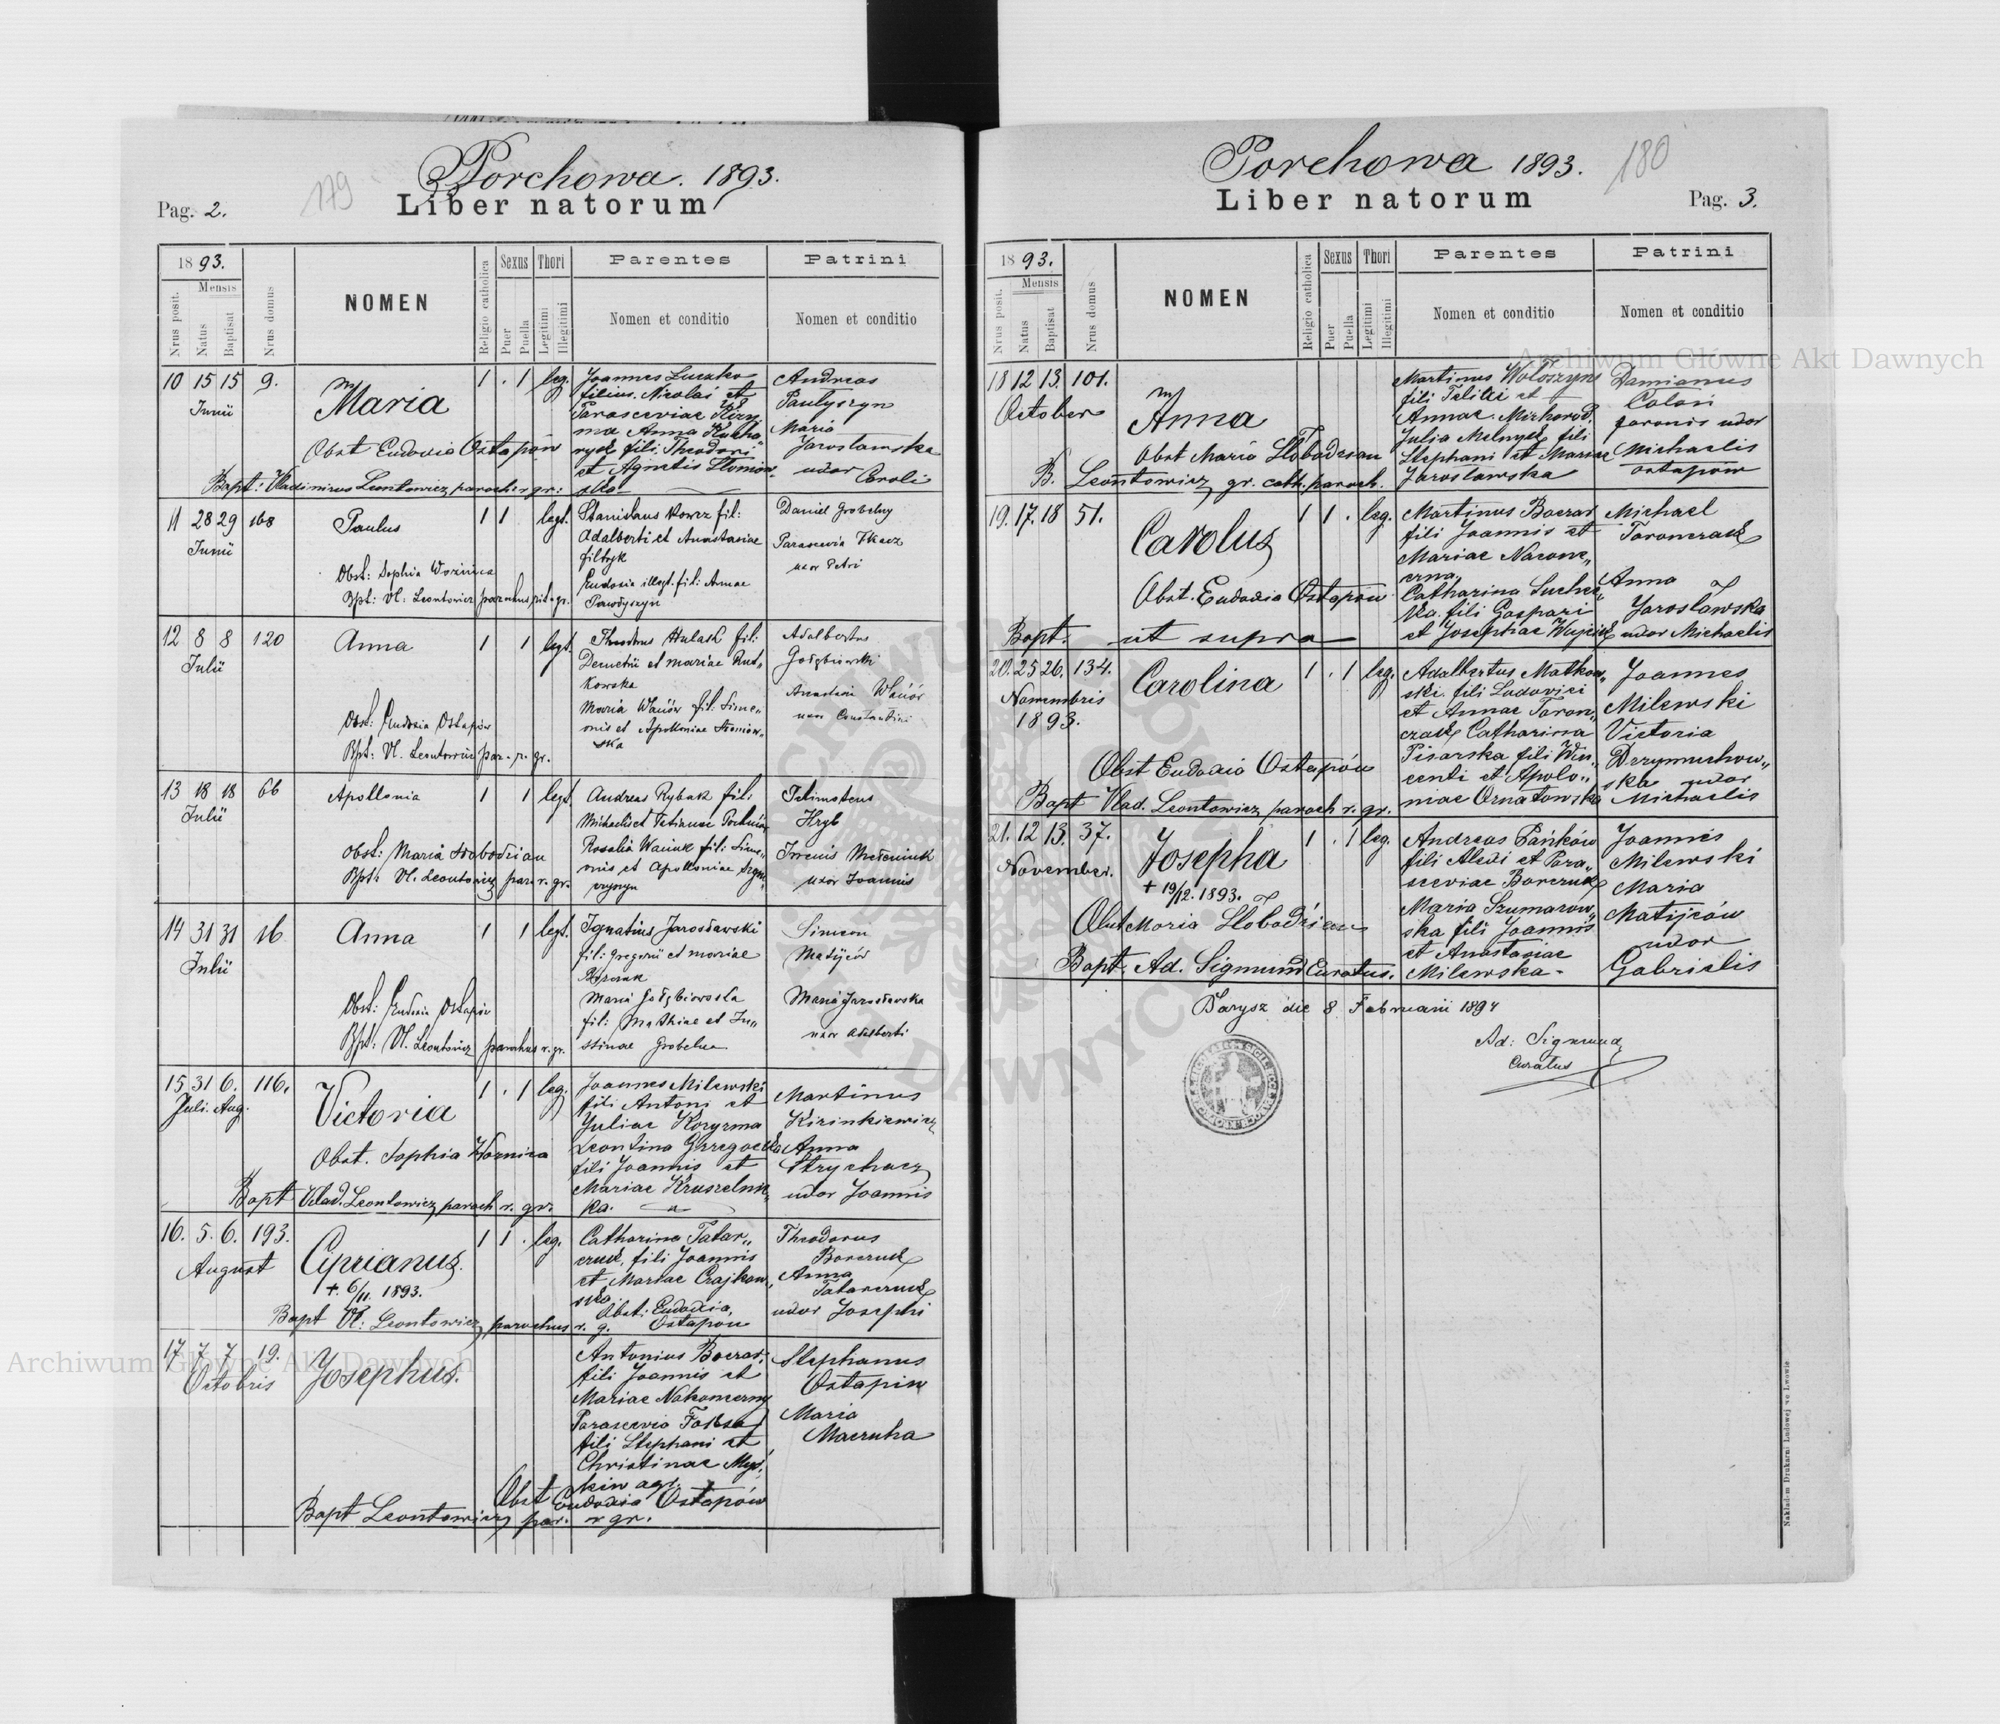 179
Porchowa. 1893.
Pag. 2.
Liber natorum
1893.
Mensis
Nrus posit.
Natus
Baptisat
Nrus domus
NOMEN
Religio catholica
Sexus
Puer
Puella
Thori
Legitimi
Illegitimi
Parentes
Nomen et conditio
Patrini
Nomen et conditio
10 15 15 9.
Junii
Maria
1 . 1 leg.
Joannes
filius. Nicolai et
Parasceviae
Anna
fili. Theodori
et Agnetis
Andreas
Pautyszyn
Maria
Jarosławska
uxor
Caroli
Obst Eudoxia Ostapów
Bapt: Vladimirus Leontowicz paroch r. gr:
11 28 29 168
Junii
Paulus
1 1 legt.
Stanislaus Kowcz fil:
Adalberti et Anastasiae
Filtyk
Eudoxia illegt. fil: Annae
Daniel Grobelny
Parascevia Tkacz
uxor Petri
Obst: Sophia Woznica
Bpt: Vl: Leontowicz parochus rit. gr.
12 8 8 120
Julii
Anna
1 1 legt.
Theodorus Hulash fil:
Demetrii et Mariae Rut„
kowska
Maria Waców fil: Sime„
onis et Apolloniae Słoniow„
ska
Adalbertus
Gołębiowski
Anastasia
uxor Constantini
Obst: Eudoxia Ostapów
Bpt: Vl. Leontowicz par. r. gr.
13 18 18 66
Julii
Apollonia
1 1 legt.
Andreas Rybak fil:
Michaelis et Tatianae
Rosalia Waciuk fil: Sime„
onis et Apolloniae
Hryb
uxor Joannis
Obst: Maria Słobodzian
Bpt: Vl. Leontowicz par. r. gr.
14 31 31 16
Julii
Anna
1 1 legt.
Ignatius Jarosławski
fil: Gregorii et Mariae
Maria Gołębiowska
fil: Mathiae et Ju„
stinae Grobelna
Simeon
Matijców
Maria Jarosławska
uxor Adalberti
Obst: Eudoxia Ostapów
Bpt: Vl. Leontowicz parochus r. gr.
15 31 6. 116.
Juli. Aug.
Victoria
1 . 1 leg.
Joannes Milewski
fili Antoni et
Juliae Koryzma
Leontina
fili Joannis et
Mariae Kruszelnic„
ka.
Martinus
Anna
Strychacz
uxor Joannis
Obst. Sophia Woznica
Bapt Vlad. Leontowicz paroch r. gr.
16. 5. 6. 193.
August
Ciprianus.
+. 6/11. 1893.
1 1 . leg.
Catharina Tatar„
czuk, fili Joannis
et Mariae Czajkow„
ska
Obst: Eudoxia
Ostapow
Theodorus
Borczuk
Anna
Tatarczuk
uxor Josephi
Bapt Vl: Leontowicz parochus r. g.
17 7 7 19.
Octobris
Josephus.
Antonius Boczar,
fili Joannis et
Mariae Nakoneczny
Parascevia
fili Stephani et
Christinae
Stephanus
Ostapiw
Maria
Macruha
Obst Eudoxia Ostapów
Bapt Leontowicz par. r gr.
180
Porchowa 1893.
Liber natorum
Pag. 3.
1893.
Mensis
Nrus posit.
Natus
Baptisat
Nrus domus
NOMEN
Religio catholica
Sexus
Puer
Puella
Thori
Legitimi
Illegitimi
Parentes
Nomen et conditio
Patrini
Nomen et conditio
18 12 13. 101.
October
Anna
Martinus Wołoszyn
fili et
Annae
Julia Melnyk fili
Stephani et Mariae
Jarosławska
Damianus
uxor
Michaelis
Ostapow
Obst Maria Słobodzian
B. Leontowicz gr. cath. paroch.
19. 17. 18 51.
Carolus
1 1 . leg.
Martinus Boczar
fili Joannis et
Mariae Nacone„
czna,
Catharina Suchec„
ka. fili Gaspari
et Josephiae
Michael
Taronczuk
Anna
Jarosławska
uxor Michaelis
Obst. Eudoxia Ostapow
Bapt. ut supra
20. 25 26. 134.
Nowembris
1893.
Carolina
1 . 1 leg.
Adalbertus Matkow„
ski. fili Ludovici
et Annae Taron„
czuk Catharina
Pisarska fili Win„
centi et Apolo„
niae Ornatowska
Joannes
Milewski
Victoria
Drzymuchow„
ska uxor
Michaelis
Obst Eudoxia Ostapów
Bapt Vlad. Leontowicz paroch r. gr.
21. 12 13. 37.
November.
Josepha
+ 19/12. 1893.
1 . 1 leg.
Andreas Pańków
fili Alexi et Para„
sceviae Borczuk
Maria Szumarow„
ska fili Joannis
et Anastasiae
Milewska.
Joannes
Milewski
Maria
Matijców
uxor
Gabrielis
Obst Maria Słobodzian
Bapt: Ad. Sigmund Curatus.
Barysz die 8 Februarii 1894
Ad: Sigmund
Curatus
Nakładem Drukarni Ludowej we Lwowie
Archiwum Główne Akt Dawnych
Archiwum Główne Akt Dawnych